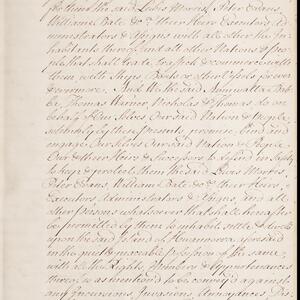 for them the said Luke Morris, Peter Evans,
William Bale &c. their Heirs Executors Ad
ministrators & Assigns with all other the In
habitants thereof and all other Nations & peo
ple that shall trade, traffick & commerce with
them with Ships Boats or other Vessels for ever
& evermore. And We the said
Thomas Warner, Nicholas & Thomas do on
behalf of Our Selves Our said Nation & People
by these presents, promise, bind and
engage Our Selves Our said Nation & People
Our & their Heirs & Successors to defend
to keep & protect them the said Lewis Morris
Peter Evans, William Bale &c. & their Heirs
Executors Administrators & Assigns, and all
other Persons whatsoever that shall hereafter
be permitted by them to inhabit settle & dwell
upon the said Island of aforesaid
in the quiet & peaceable possession of the same
with all the Rights Members & Appurtenances
thereto as mentioned to be conveyed against
any Incursions, Invasions,